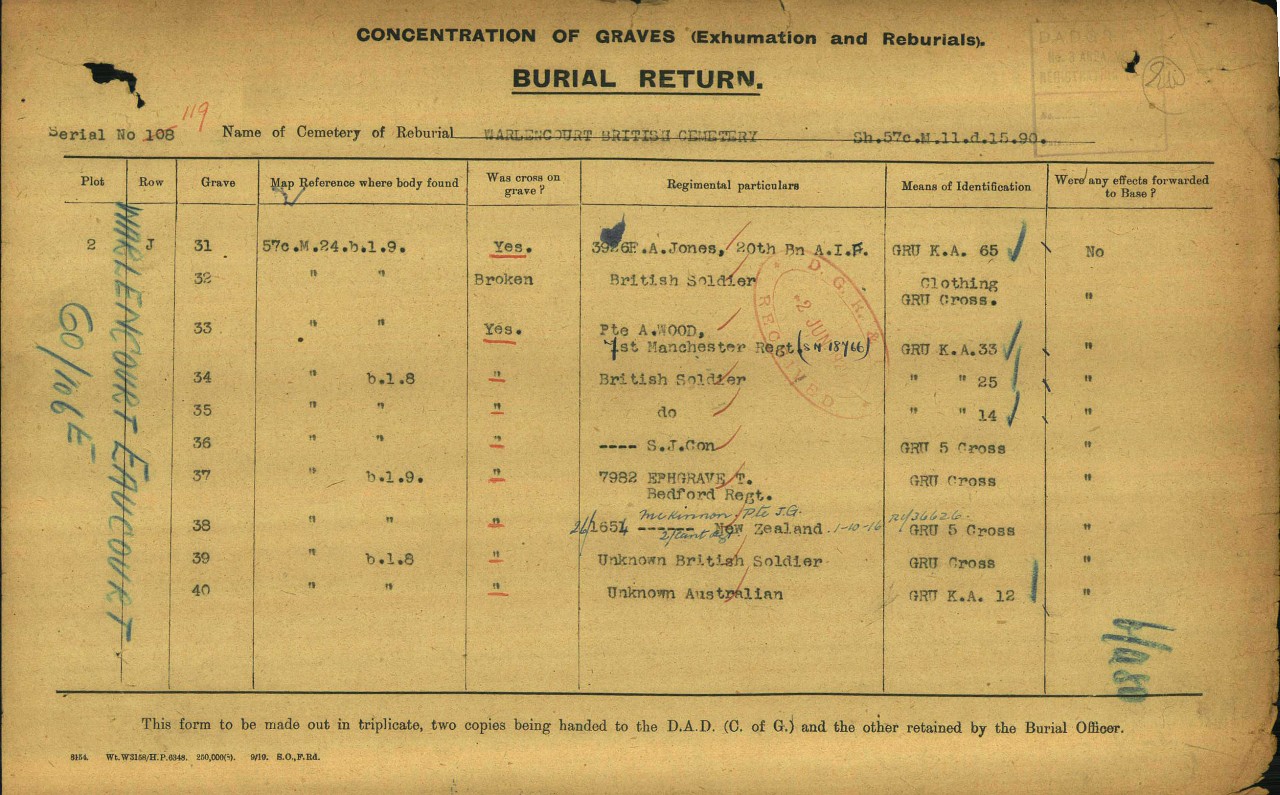 CONCENTRATION OF GRAVES (Exhumation and Reburials).
BURIAL RETURN.
119
Serial No 108 Name of Cemetery of Reburial WARLENCOURT BRITISH CEMETERY Sh.57c.M.11.d.15.90.
Plot Row Grave Map Reference where body found Was cross on grave? Regimental particulars Means of Identification Were any effects forwarded to Base?
2 J 31 57c.M.24.b.1.9. Yes. 3926 E.A.Jones, 20th Bn A.I.F. GRU K.A. 65 No
32 " " Broken British Soldier Clothing
GRU Cross. "
33 " " Yes. Pte A.WOOD,
1st Manchester Regt. (SN 18766) GRU K.A.33 "
34 " b.1.8 " British Soldier " " 25 "
35 " " " do " " 14 "
36 " " " ---- S.J.Con GRU 5 Cross "
37 " b.1.9. " 7982 EPHGRAVE T.
Bedford Regt. GRU Cross "
McKinnon, Pte J.G.
38 " " " 26/1654 ------ New Zealand. 1-10-16 GRU 5 Cross "
39 " b.1.8 " Unknown British Soldier GRU Cross "
40 " " " Unknown Australian GRU K.A. 12 "
WARLENCOURT EAUCOURT
60/106E
D. G. R. &
2 JUN
RECEIVED
This form to be made out in triplicate, two copies being handed to the D.A.D. (C. of G.) and the other retained by the Burial Officer.
8154. Wt.W3158/H.P.6348. 250,000(s). 9/19. S.O.,F.Rd.